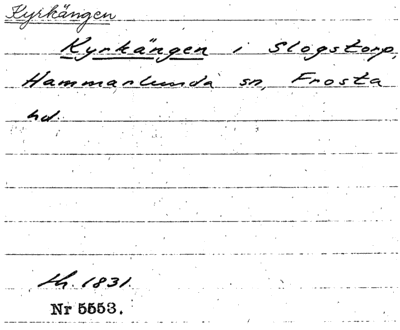 Kyrkängen
Kyrkängen i Slogstorp,
Hammarlunda sn, Frosta
hd.
th. 1831.
Nr 5553.